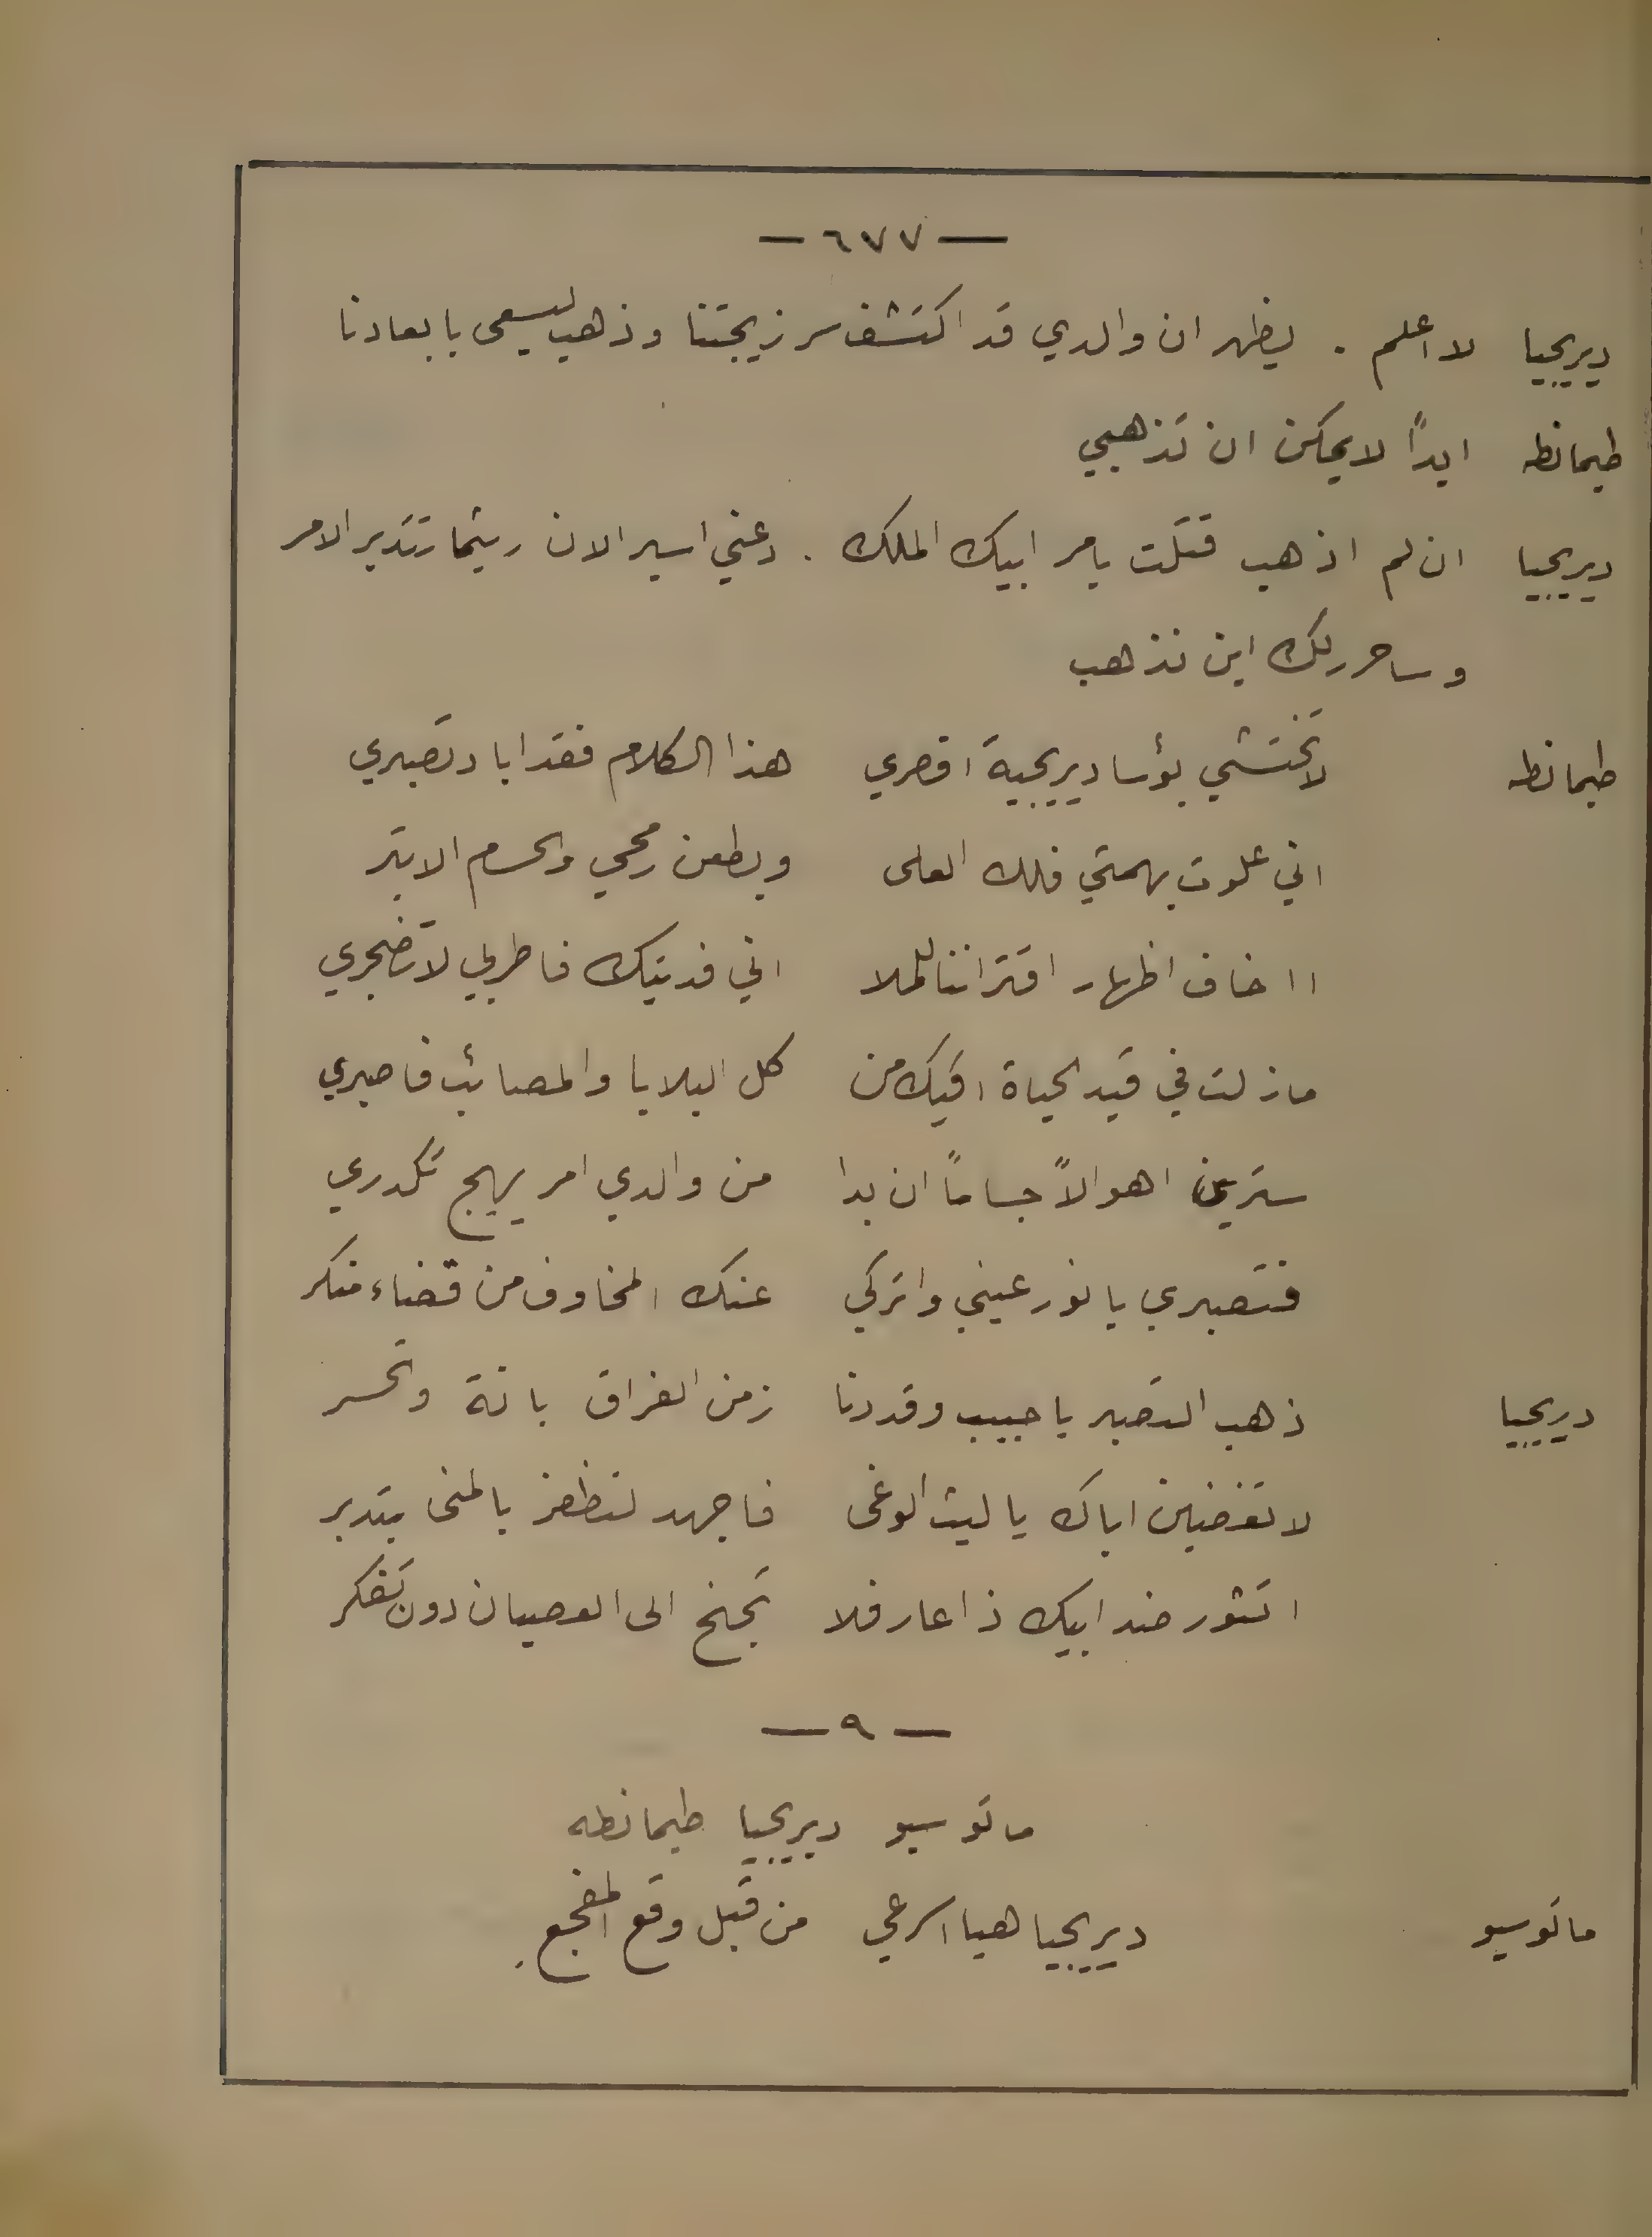 — ٦٧٧ —
ديريجيا لا اعلم . يظهر ان والدي قد اكتشف سر زيجتنا وذهب ليسعى بابعادنا
طيمانطه ابداً لا يمكن ان تذهبي
ديريجيا ان لم اذهب قتلت بامر ابيك الملك . دعني اسير الان ريثما تتدبر الامر
وساحرر لك اين نذهب
طيمانطه لا تختشي بؤسا ديريجية اقصري هذا الكلام فقد اباد تصبري
اني علوت بهمتي فلك العلى وبطعن رمحي والحسام الابتر
ااخاف اظهار اقتراننا للملا اني فديتك فاطربي لا تضجري
ما زلت في قيد الحياة اقيك من كل البلايا والمصائب فاصبري
سترين اهوالاً جساماً ان بدا من والدي امر يهيج تكدري
فتصبري يا نور عيني واتركي عنك المخاوف من قضاء منكر
ديريجيا ذهب التصبر يا حبيب وقد دنا زمن الفراق بانة وتحسر
لا تغضبن اباك يا ليث الوغى فاجهد لتظفر بالمنى بتدبر
اتثور ضد ابيك ذا عار فلا تجنح الى العصيان دون تفكر
— ٩ —
ماتوسيو ديريجيا طيمانطه
ماتوسيو ديريجيا هيا اسرعي من قبل وقع المفجع